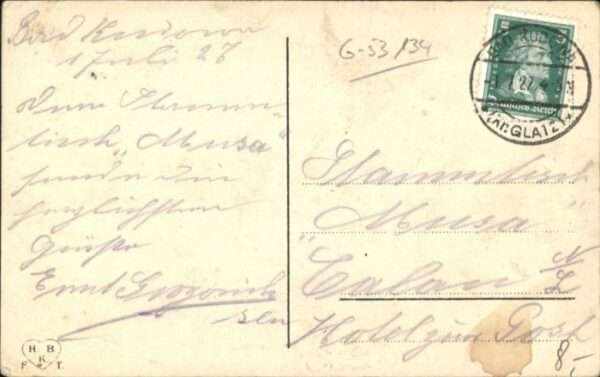 Bad Kudowa
1 Juli 27
Dem Stamm-
tisch „Musa"
sende die
herzlichsten
Grüße
Ernst
G-53/34
BAD KUDOWA
27
(KR. GLATZ)
Deutsches Reich
Stammtisch
"Musa"
Calau N/L
Hotel zur Post
8,-
H B
K
F T.